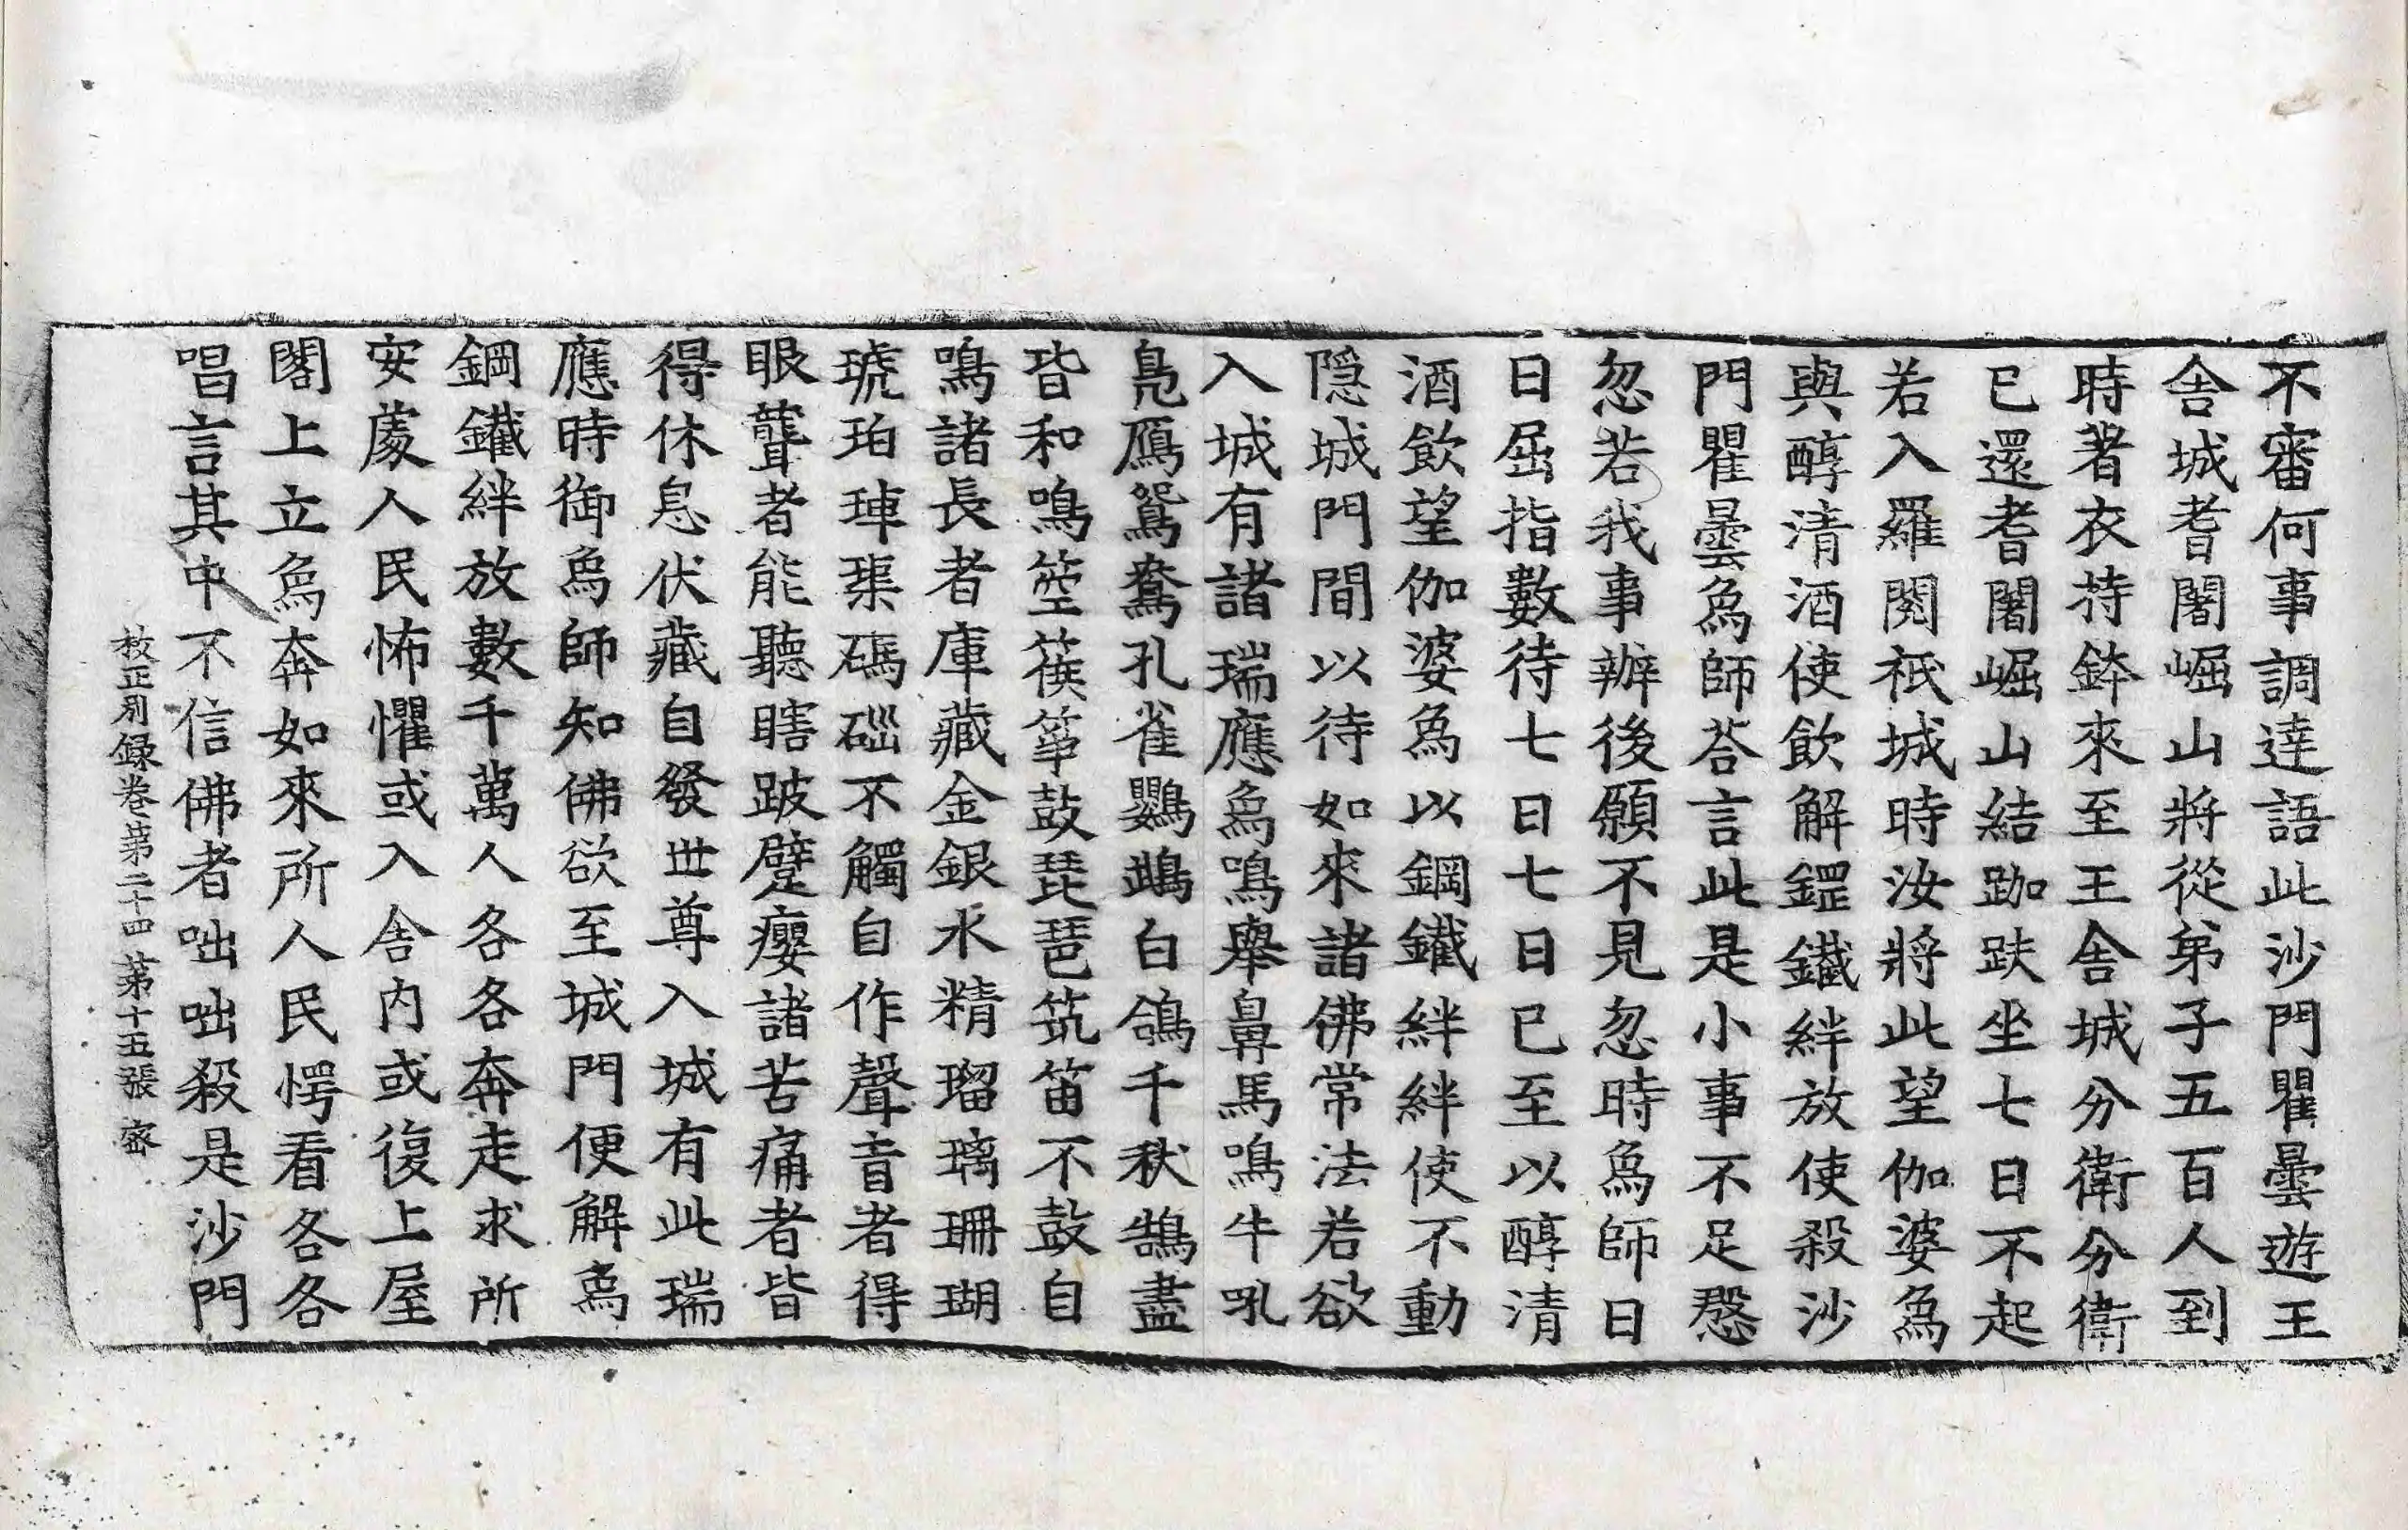 不審何事調達語此沙門瞿曇遊王
舍城耆闍崛山將從弟子五百人到
時著衣持鉢來至王舍城分衛分衛
已還耆闍崛山結跏趺坐七日不起
若入羅閱祇城時汝將此望伽婆爲
與醇清酒使飲解鋥鐵絆放使殺沙
門瞿曇爲師荅言此是小事不足慇
忽若我事辦後願不見忽時爲師日
日屈指數待七日七日已至以醇清
酒飲望伽婆爲以鋼鐵絆絆使不動
隱城門間以待如來諸佛常法若欲
入城有諸瑞應爲鳴舉鼻馬鳴牛吼
鳧鴈鴛鴦孔雀鸚鵡白鴿千秋鵠盡
皆和鳴箜篌箏鼓琵琶筑笛不鼓自
鳴諸長者庫藏金銀水精瑠璃珊瑚
琥珀硨磲碼碯不觸自作聲盲者得
眼聾者能聽瞎跛躄癭諸苦痛者皆
得休息伏藏自發世尊入城有此瑞
應時御爲師知佛欲至城門便解爲
鋼鐵絆放數千萬人各各奔走求所
安處人民怖懼或入舍内或復上屋
閣上立爲奔如來所人民愕看各各
唱言其中不信佛者咄咄殺是沙門
校正別録卷第二十四 第十五張 密